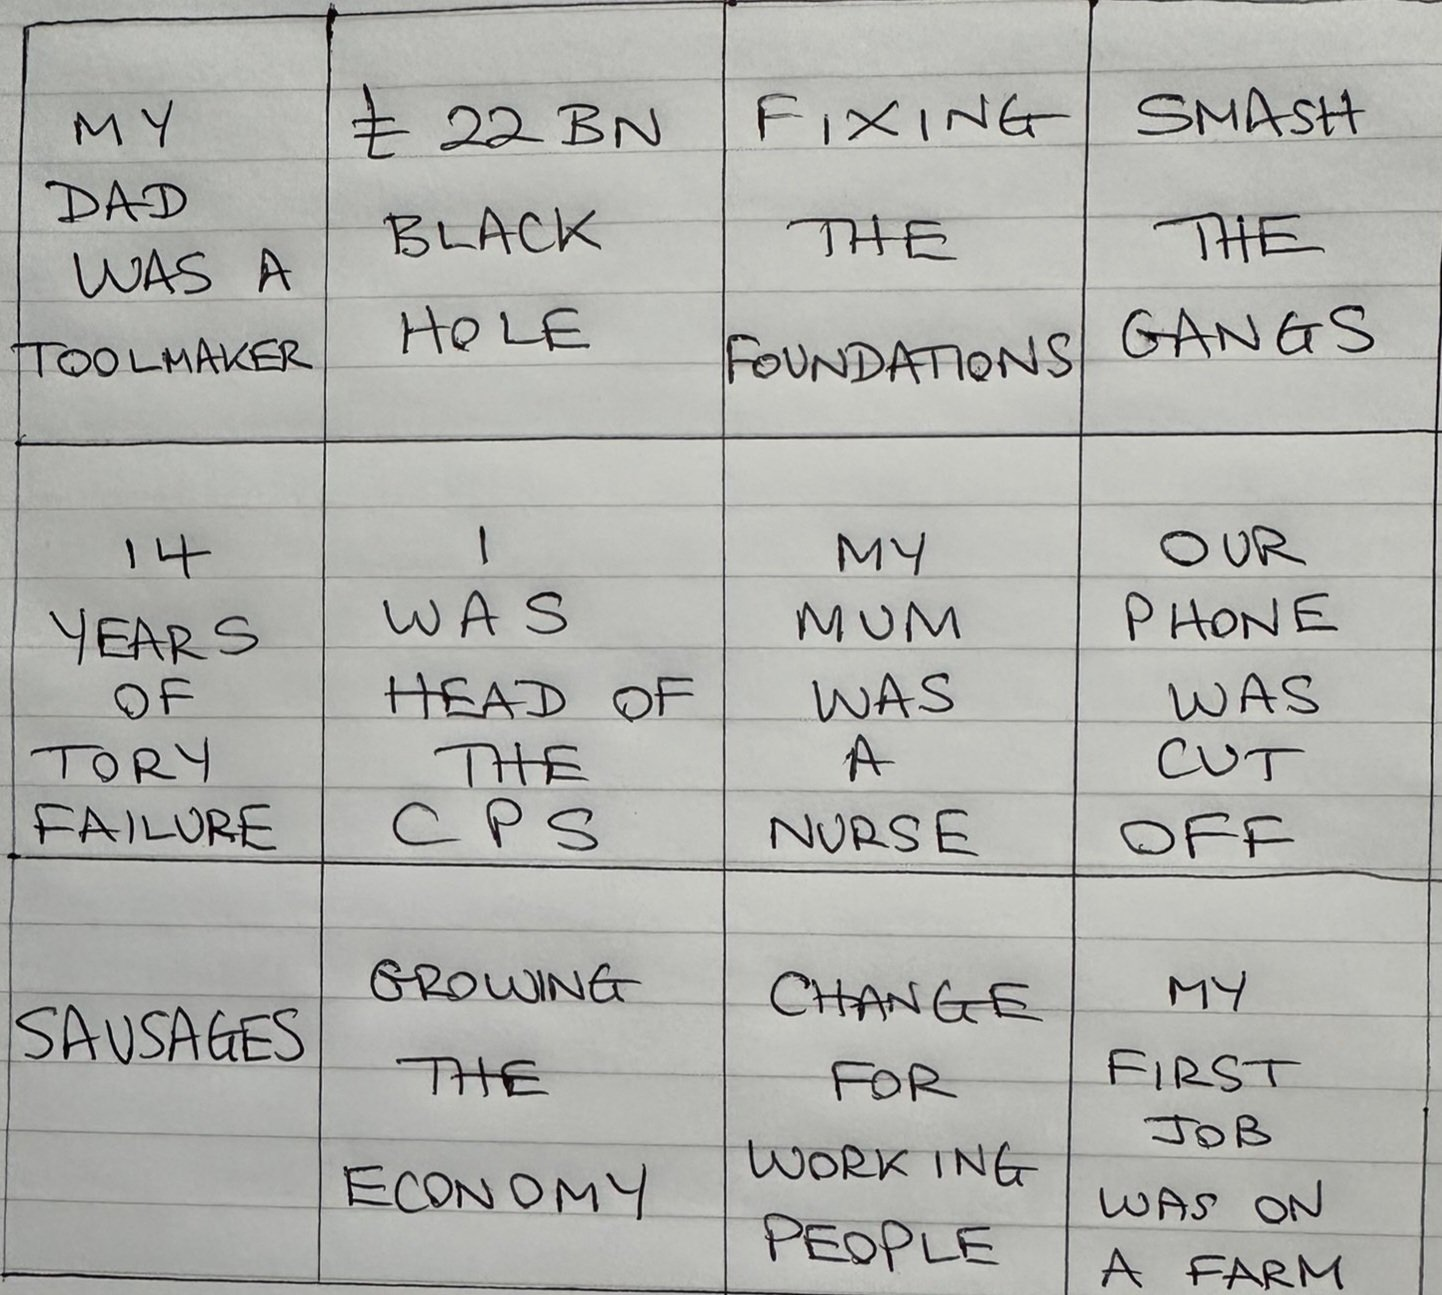 MY
DAD
WAS A
TOOLMAKER
£22BN
BLACK
HOLE
FIXING
THE
FOUNDATIONS
SMASH
THE
GANGS
14
YEARS
OF
TORY
FAILURE
I
WAS
HEAD OF
THE
CPS
MY
MUM
WAS
A
NURSE
OUR
PHONE
WAS
CUT
OFF
SAUSAGES
GROWING
THE
ECONOMY
CHANGE
FOR
WORKING
PEOPLE
MY
FIRST
JOB
WAS ON
A FARM